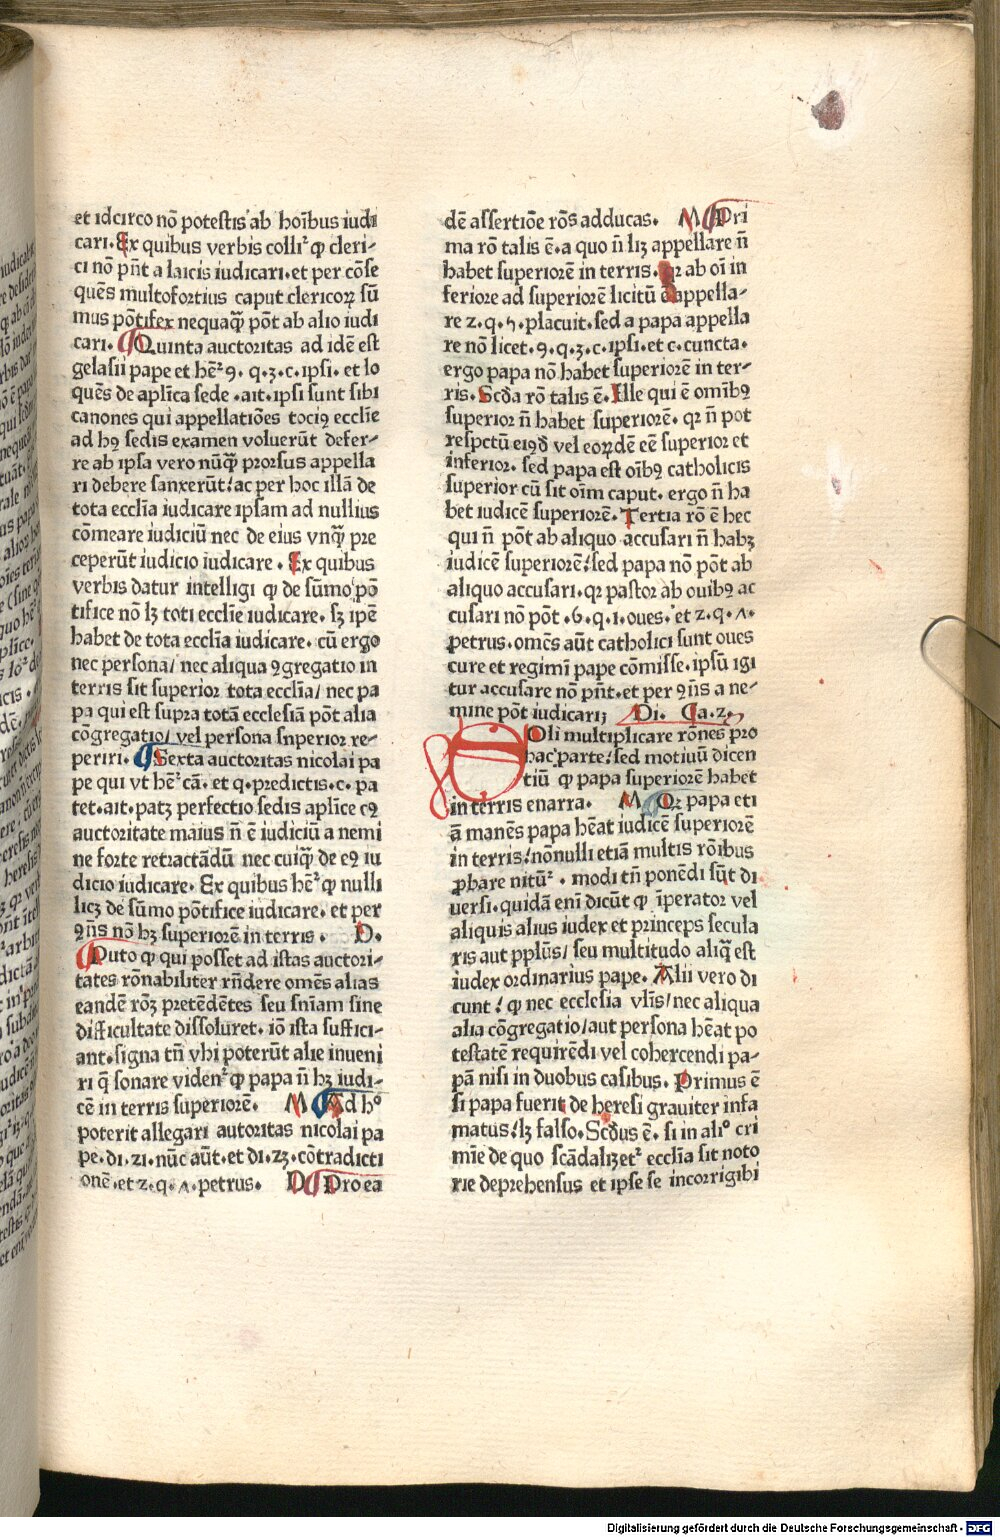 et idcirco nō potestis ab hoībus iudi
cari. Ex quibus verbis colliᷣ ꝙ cleri-
ci nō pn̄t a laicis iudicari. et per cōse
quēs multofortius caput clericoꝝ sū
mus pōtifex nequaq̄ꝫ pōt ab alio iudi
cari. Quinta auctoritas ad idē est
gelasii pape et hēᷣ 9. q. 3. c. ipsi. et lo
quēs de aplīca sede . ait. ipsi sunt sibi
canones qui appellatiōes tociꝰ ecclīe
ad hꝰ sedis examen voluerūt defer-
re ab ipsa vero nūq̄ꝫ prorsus appella
ri debere sanxerūt/ ac per hoc illā de
tota ecclīa iudicare ipsam ad nullius
cōmeare iudiciū nec de eius vnq̄ꝫ pre
ceperūt iudicio iudicare . Ex quibus
verbis datur intelligi ꝙ de sūmo pō
tifice nō lꝫ toti ecclīe iudicare. sꝫ ipē
habet de tota ecclīa iudicare. cū ergo
nec persona/ nec aliqua ꝯgregatio in
terris sit superior tota ecclīa/ nec pa
pa qui est supra totā ecclesiā pōt alia
cōgregatio/ vel persona snperior re-
periri. Sexta auctoritas nicolai pa
pe qui vt hēᷣ cā. et q. predictis. c. pa
tet. ait. patꝫ perfectio sedis aplīce cꝰ
auctoritate maius n̄ ē iudiciū a nemi
ne forte retractādū nec cuiq̄ꝫ de eꝰ iu
dicio iudicare. Ex quibus hēᷣ ꝙ nulli
licꝫ de sūmo pōtifice iudicare. et per
ꝯn̄s nō hꝫ superiorē in terris . D.
Puto ꝙ qui posset ad istas auctori-
tates rōnabiliter rn̄dere omēs alias
eandē rōꝫ pretēdētes seu sn̄iam sine
difficultate dissoluret. iō ista suffici-
ant. signa tn̄ vbi poterūt alie inueni
ri q̄ sonare videnᷣ ꝙ papa n̄ hꝫ iudi-
cē in terris superiorē. M Ad hº
poterit allegari autoritas nicolai pa
pe. di. 21. nūc aūt. et di. 23. cōtradicti
onē. et 2. q. 7. petrus. D Pro ea
dē assertiōe rōs adducas. M Pri
ma rō talis ē. a quo n̄ lꝫ appellare n̄
habet superiorē in terris. qꝛ ab oī in
feriore ad superiorē licitū ē appella-
re 2. q. 5. placuit. sed a papa appella
re nō licet. 9. q. 3. c. ipsi. et c. cuncta.
ergo papa nō habet superiorē in ter-
ris. Scd̄a rō talis ē. Ille qui ē omībꝰ
superior n̄ habet superiorē. qꝛ n̄ pot
respctū eiꝰd̄ vel eoꝝdē eē superior et
inferior. sed papa est oībꝰ catholicis
superior cū sit oīm caput. ergo n̄ ha
bet iudicē superiorē. Tertia rō ē hec
qui n̄ pōt ab aliquo accusari n̄ habꝫ
iudicē superiorē/ sed papa nō pōt ab
aliquo accusari. qꝛ pastor ab ouibꝰ ac
cusari nō pōt . 6. q. 1. oues. et 2. q. 7.
petrus. omēs aūt catholici sunt oues
cure et regimī pape cōmisse. ipsū igi
tur accusare nō pn̄t. et per ꝯn̄s a ne-
mine pōt iudicari; Di. Ca. 2.
Oli multiplicare rōnes pro
hac parte/ sed motiuū dicen
tiū ꝙ papa superiorē habet
in terris enarra. M Qꝛ papa eti
ā manēs papa hēat iudicē superiorē
in terris/ nōnulli etiā multis rōibus
ꝓbare nitūᷣ . modi tn̄ ponēdi sūt di
uersi. quidā enī dicūt ꝙ īperator vel
aliquis alius iudex et princeps secula
ris aut pplūs/ seu multitudo aliq̄ est
iudex ordinarius pape. Alii vero di
cunt / ꝙ nec ecclesia vlīs/ nec aliqua
alia cōgregatio/ aut persona hēat po
testatē requirēdi vel cohercendi pa-
pā nisi in duobus casibus. Primus ē
si papa fuerit de heresi grauiter infa
matus/ lꝫ falso. Scd̄us ē. si in aliº cri
mīe de quo scādalizetᷣ ecclīa sit noto
rie deprehensus et ipse se incorrigibi
Digitalisierung gefördert durch die Deutsche Forschungsgemeinschaft - DFG